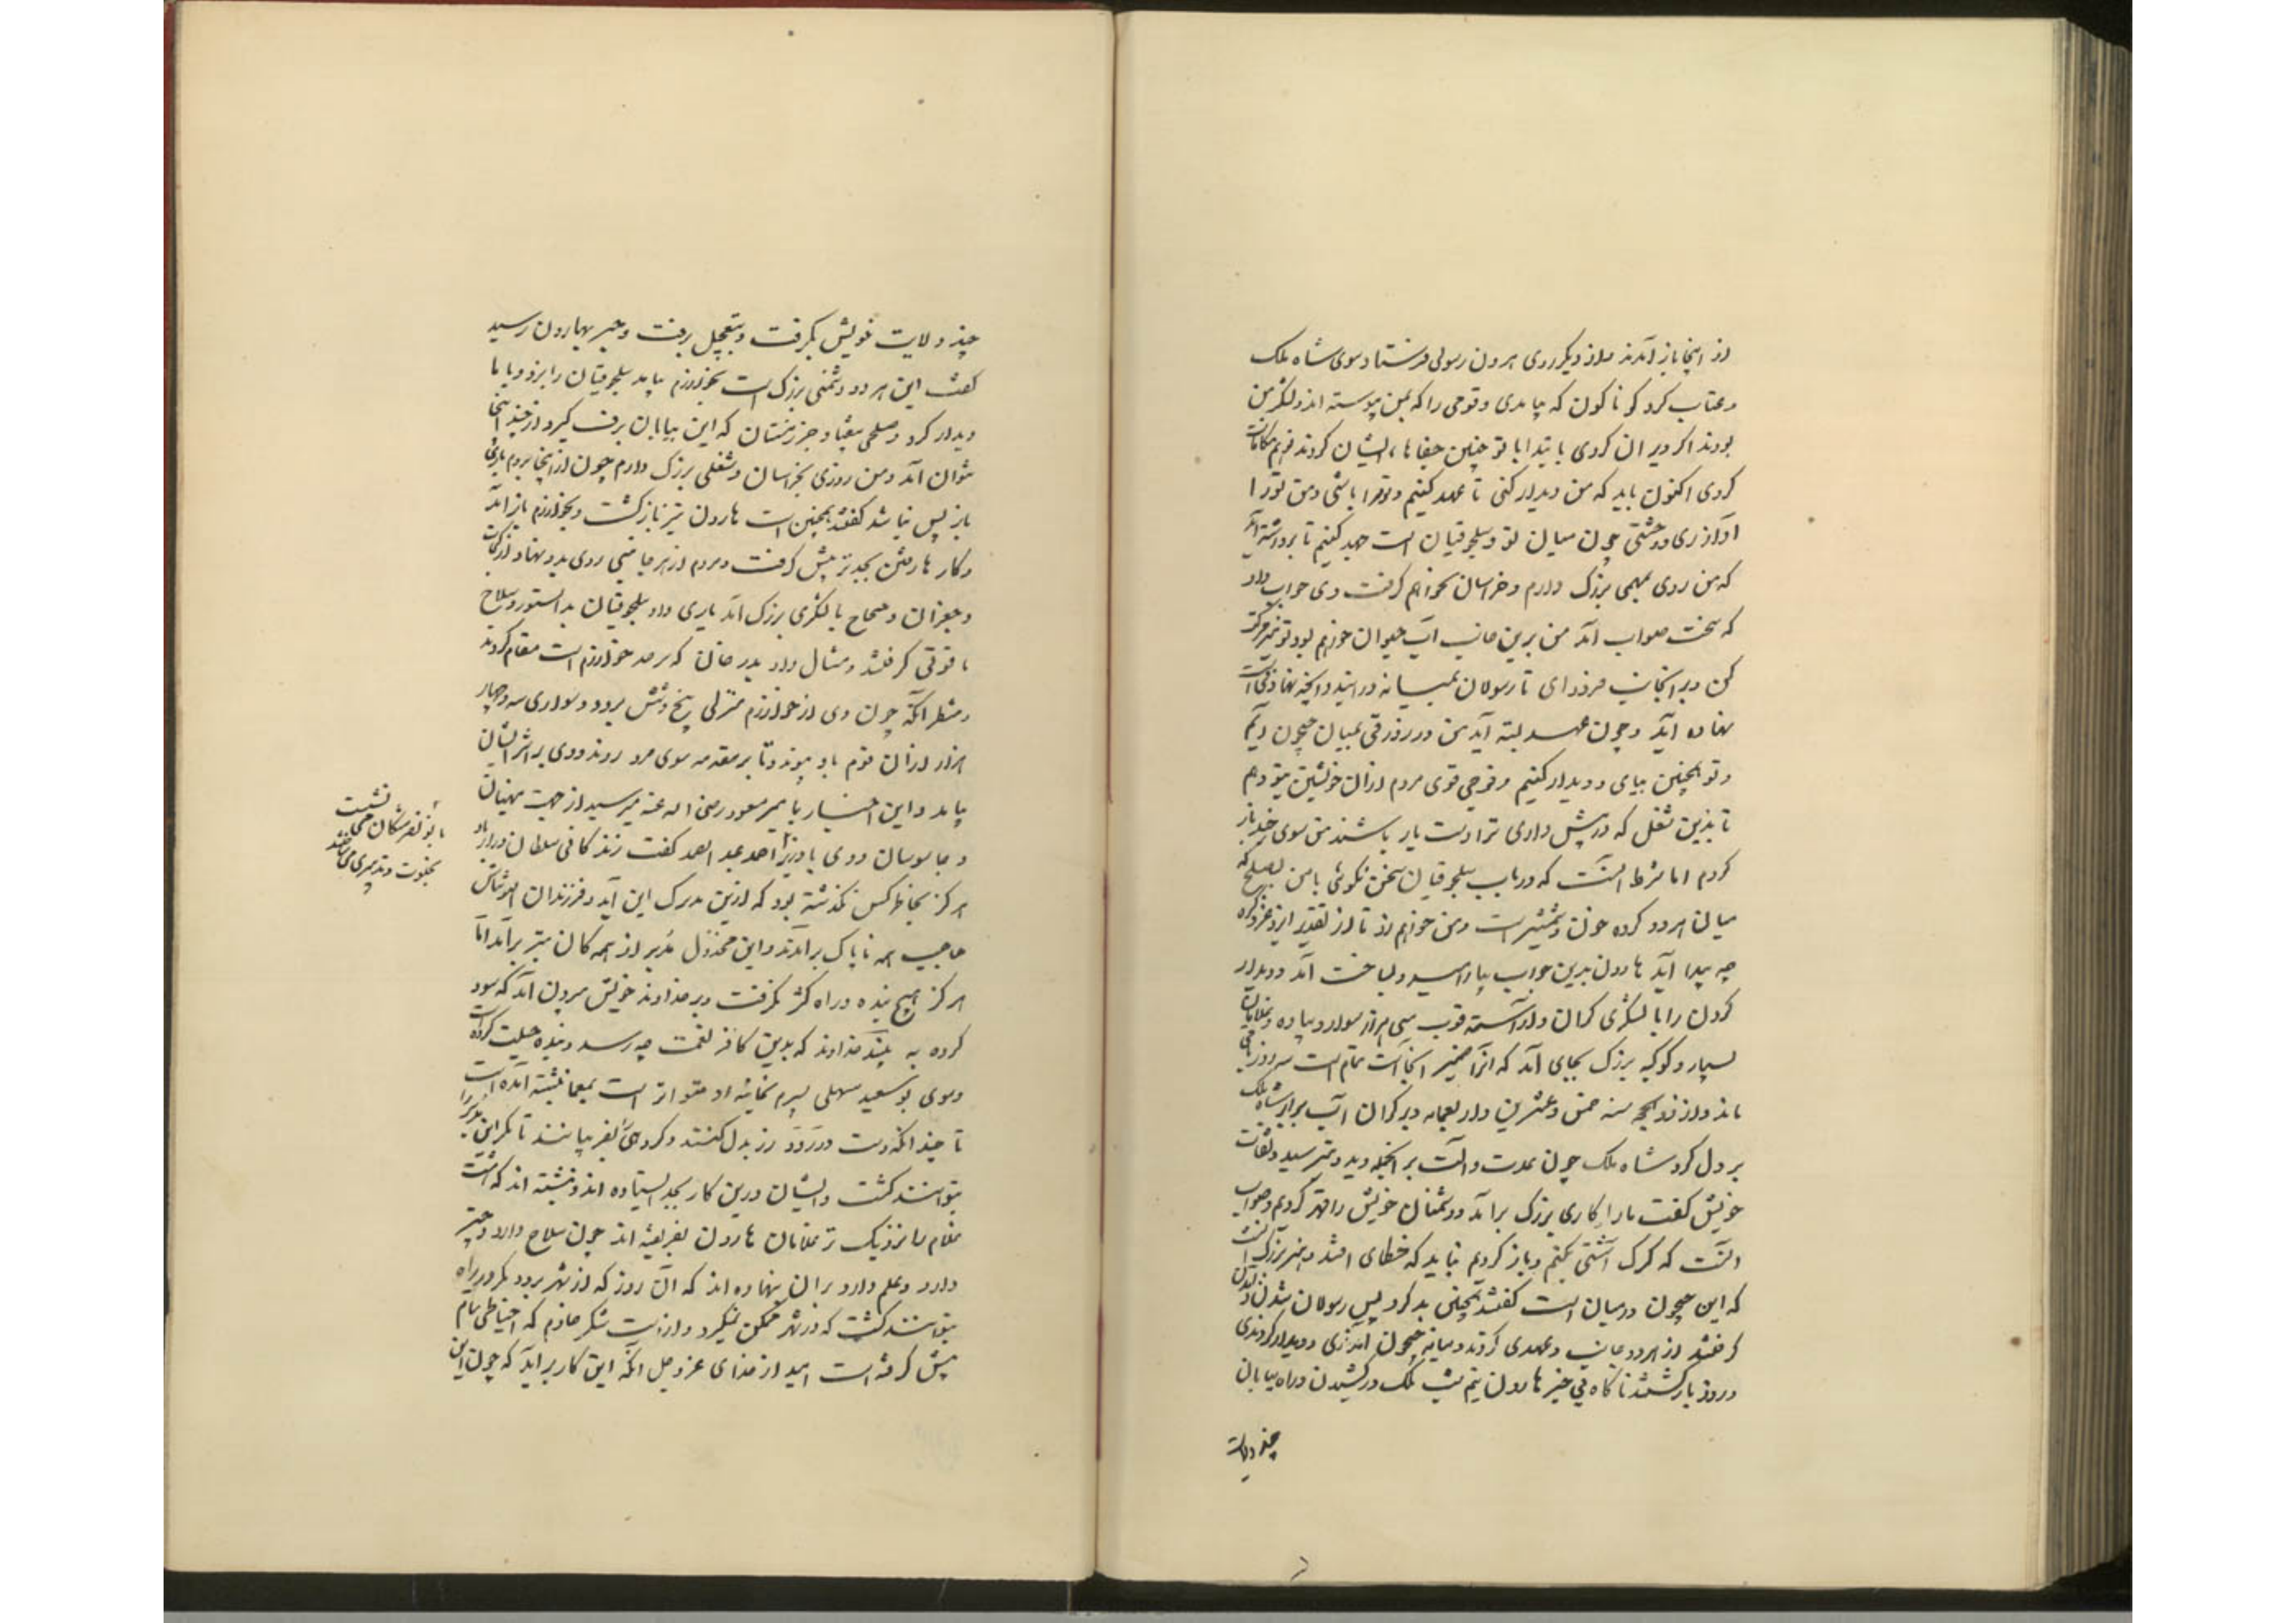 از اینجا باز آمدند ملاز دیگر روی هرون رسولی فرستاد سوی شاه ملک
و عتاب کرد کوناکون که بیامدی و قومی را که بمن پیوسته اند و لشکر من
بودند اکر ویران کردی با بتدا با تو چنین جفاها ایشان کردند مکافات
کردی اکنون باید که من دیدار کنی تا عهد کنیم و تو مرا باشی و من تو را
آزاری و وحشتی چون میان تو و سلجوقیان است جهد کنیم تا برداشته آید
که من روی بمهمی بزرک دارم و خراسان بخواهم کرفت وی جواب داد
که سخت صواب آمد من برین جانب آب جیحون خواهم بود تو نیز حرکت
کن و بر آنجانب فرود ای تا رسولان بمیانه درایند و آنچه نهادنی است
نهاده آید و چون عهد بسته آید من در زورقی بمیان جیحون آیم
و تو همچنین بیای و دیدار کنیم و فوجی قوی مردم ازان خویشتن بتو دهم
تا بدین شغل که در پیش داری ترا دست یار باشند من سوی خند باز
کردم اما شرط آنست که در باب سلجوقیان سخن نکوئی با من بصلح که
میان هر دو کروه خون و شمشیر است و من خواهم زد تا از تقدیر ایزد عز ذکره
چه پیدا آید هارون بدین جواب بیارامید و بساخت آمد و دیدار
کردن را با لشکری کران و آراسته قرب سی هزار سوار و پیاده و غلامان
بسیار و کوکبه بزرک بجای آمد که آنرا ضمیر آنجا است تمام است سه روز باقی
مانده از ذوالحجه سنه خمس و عشرین و اربعمایه و بر کران آب برابر شاه ملک
بر دل کرد شاه ملک چون عدت و آلت بر آنجمله دید و بترسید و ثقات
خویش کفت مارا کاری بزرک برآمد و دشمنان خویش را قهر کردیم و صواب
آنست که کرک آشتی بکنیم و باز کردیم نباید که خطای افتد و هنر بزرک آنست
که این جیحون در میان است کفتند همچنین باید کرد پس رسولان شدن و آمدن
کرفتند از هر دو جانب و عهدی کردند و میانه جیحون آمدندی و دیدار کردندی
و زود باز کشتند ناکاه بی خبر هارون نیم شب ملک در کشیدن و راه بیابان
جند ولایت
جند ولایت خویش بکرفت و بتعجیل برفت و خبر بهارون رسید
کفت این هر دو دشمنی بزرک است بخوارزم بیاید سلجوقیان را بزد و با ما
دیدار کرد و صلحی بیفتاد و جز زمستان که این بیابان برف کیرد از جند اینجا
نتوان آمد و من روزی بخراسان و شغلی بزرک دارم چون از اینجا بروم باری
باز پس نباشد کفتند همچنین است هارون نیز باز کشت و بخوارزم باز آمد
و کار ها رفتن بجدتر پیش کرفت و مردم از هر جانبی روی بدو نهاد از کجات
و جغراق و خفجاخ با لشکری بزرک آمد یاری داد سلجوقیان بدا ستور و سلاح
تا قوتی کرفتند و مثال داد بدر خان که سرحد خوارزم است مقام کردند
و منتظر آنکه چون وی از خوارزم منزلی پنج و شش برود و سواری سه و چهار
هزار از ان قوم بدو پیوندد تا بر مقدمه سوی مرو روند و وی بر اثر ایشان
بیاید و این اخبار با میر مسعود رضی اله عنه میرسید از جهت منهیان
و جاسوسان و وی با وزیر احمد عبد الصمد کفت زندکانی سلطان دراز باد
هرکز بخاطر کس نکذشته بود که ازین مدرک این آید و فرزندان التونتاش
حاجب همه ناپاک برآمدند و این مخذول مدبر از همه کان بتر برآمد اما
هرکز هیچ بنده و راه کژ نکرفت و بر خداوند خویش بیرون آمد که سود
کرده به بیند خداوند که بدین کافر نعمت چه رسد و بنده حیلت کرده است
و سوی بو سعید سهلی پسرم بخانه او متواتر است بمعما نبشته آمده است
تا چندانکه دست دررود زر بدل کنند و کروهی را بفریبانند تا مکر این مدبر را
بتوانند کشت و ایشان درین کار بجد ایستاده اند و نبشته اند که هشت
غلام را نزدیک تر غلامان هارون بفریفته اند چون سلاح دار و چتر
دار و علم دار و بران بنهاده اند که آن روز که از شهر برود مکر در راه
بتوانند کشت که در شهر ممکن نمیکردد از انست شکر خادم که احتیاطی تمام
پیش کرفته است امید از خدای عز و جل آنکه این کار برآید که چون این
نشست
با بو نصر مشکان
بخلوت و تدبیری